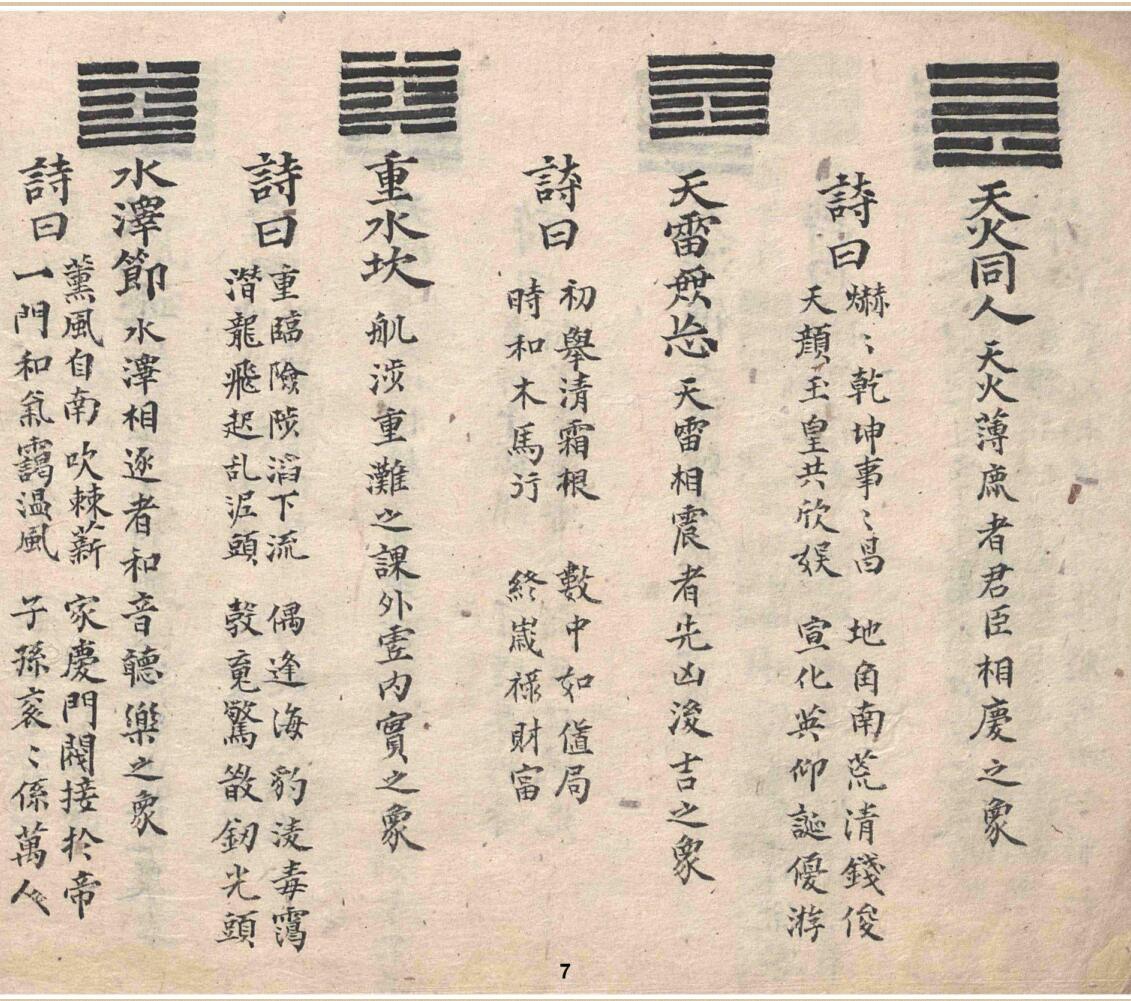 天火同人 天火薄庶者君臣相慶之象
詩曰
爀〻乾坤事〻昌 地角南荒清錢俊
天顔玉皇共欣娱 宣化英仰誕優游
天雷旡忘 天雷相震者先凶浚吉之象
詩曰
初舉清霜根 數中如值局
時和木馬行 終嵗禄財富
重水坎 舩涉重灘之課外虚内實之象
詩曰
重臨險陟滔下流 偶逢海豹淩毒霭
潛龍飛起乱泥頭 驚散釰光頭
水澤節 水澤相逐者和音聽樂之象
詩曰
薰風自南吹棘薪 家慶門閥接扵帝
一門和氣靄温風 子孫衮〻係萬人
7